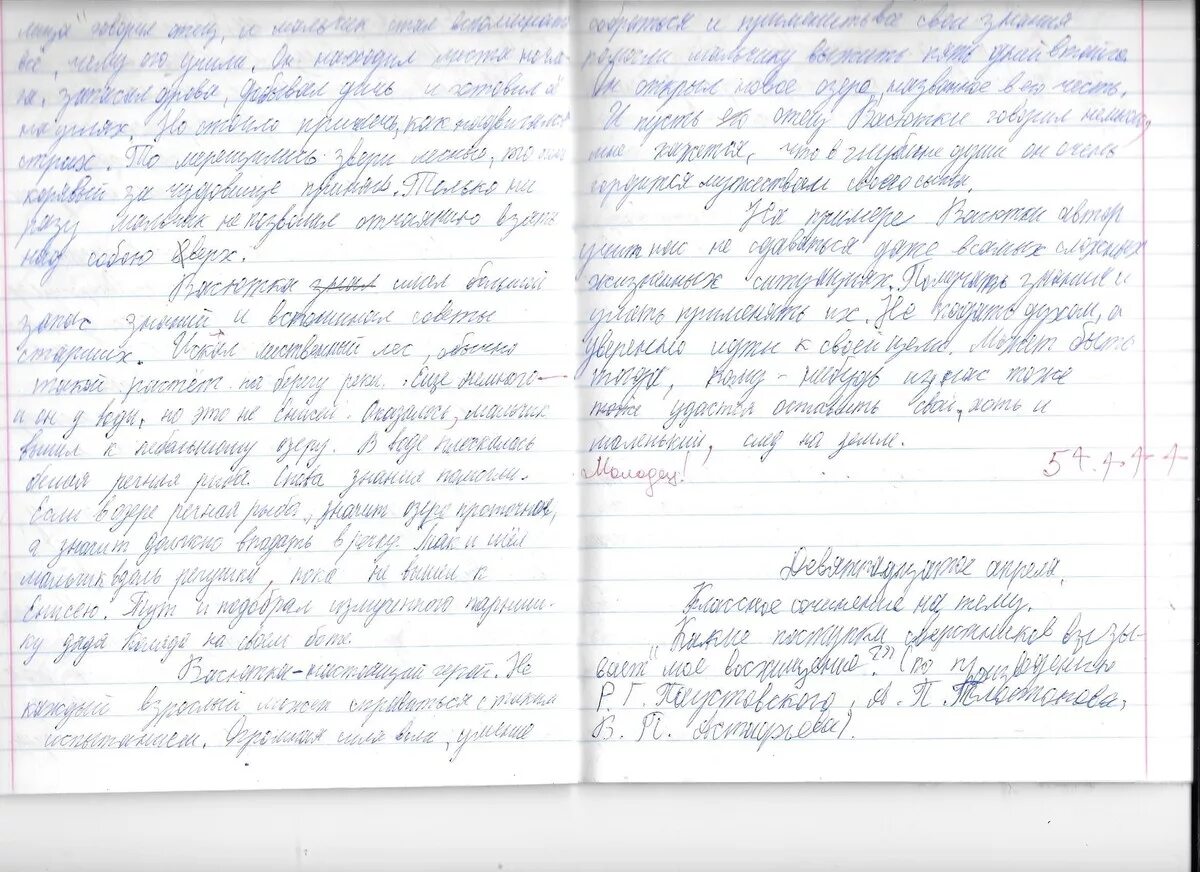 говорил отец, и мальчик стал вспоминать
всё, чему его учили. Он находил места ночле-
га, запасал дрова, добывал дичь и готовил её
на углях. Но стоило прилечь, как надвигался
страх. То мерещились звери лесные, то пень
корявый за чудовище принял. Только ни
разу мальчик не позволил отчаянию взять
над собою верх.
Васютка знал имел большой
запас знаний и вспоминал советы
старших. Искал лиственный лес, обычно
такой растёт на берегу реки. Еще немного
и он у воды, но это не Енисей. Оказалось, мальчик
вышел к небольшому озеру. В воде плескалась
белая речная рыба. Снова знания помогли.
Если в озере речная рыба, значит озеро проточное,
а значит должно впадать в реку. Так и шёл
мальчик вдоль речушки, пока не вышел к
Енисею. Тут и подобрал измученного парниш-
ку дядя Коляда на своём боте.
Васютка-настоящий герой. Не
каждый взрослый может справиться с таким
испытанием. Огромная сила воли, умение
собраться и применить все свои знания
помогли мальчику выжить пять дней в тайге.
Он открыл новое озеро, названное в его честь.
И пусть отец Васютки говорил
мне кажется, что в глубине души он очень
гордится мужеством своего сына.
На примере Васютки автор
учит нас не сдаваться даже в самых сложных
жизненных ситуациях. Получать знания и
уметь применять их. Не падать духом, а
уверенно идти к своей цели. Может быть
тогда, кому-нибудь из нас тоже
удастся оставить свой, хоть и
маленький, след на земле.
Молодец! 5
Девятнадцатое апреля.
Классное сочинение на тему.
"Какие поступки сверстников вызы-
вает моё восхищение?" (по произведению
Р. Г. Паустовского, А. П. Платонова,
В. П. Астафьева).